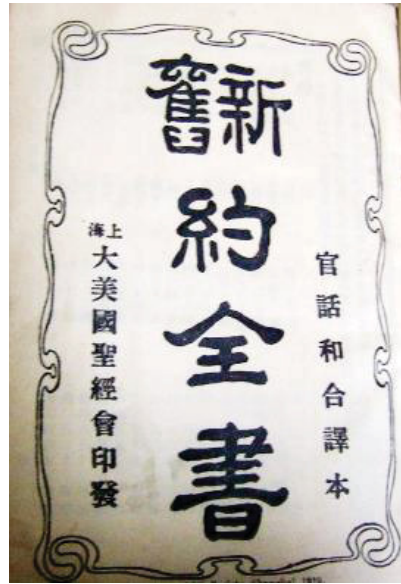 官話和合譯本
新舊
約全書
上海
大美國聖經會印發